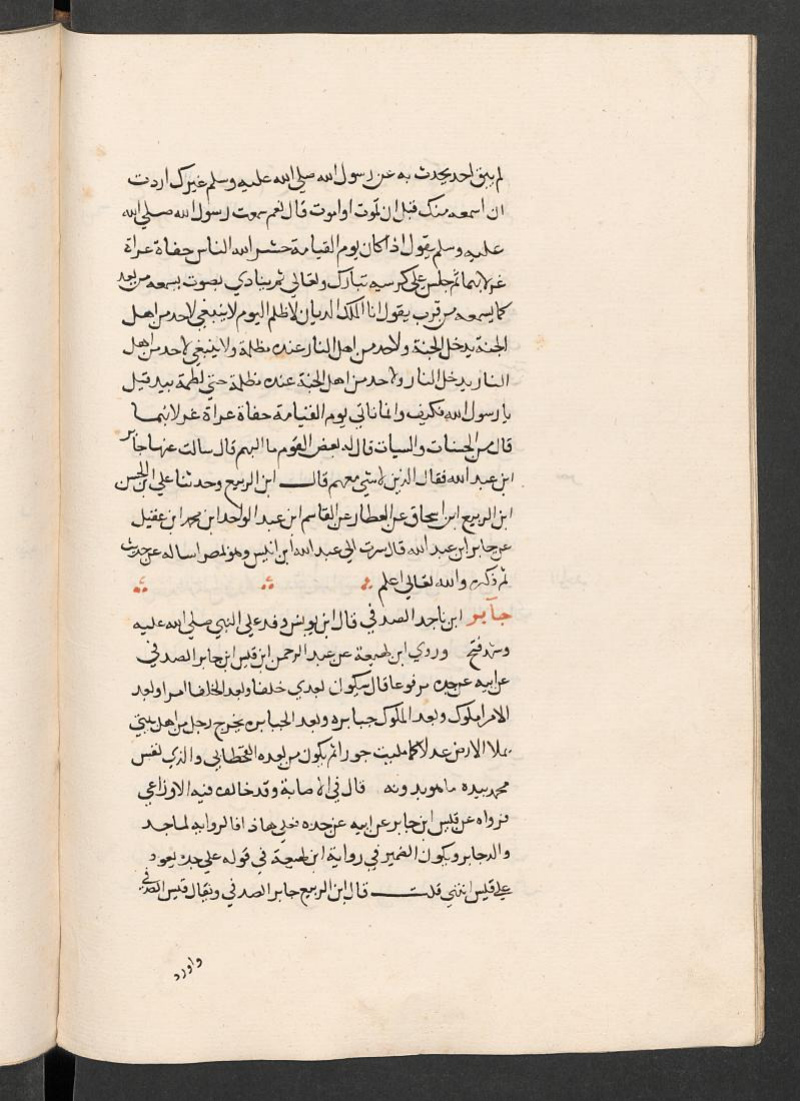 لم يبق احد يحدث به عن رسول الله صلي الله عليه وسلم غيرك اردت
ان اسمعه منك قبل ان تموت او اموت قال نعم سمعت رسول الله صلي الله
عليه وسلم يقول اذا كان يوم القيامة حشر الله الناس حفاة عراة
غرلا بهما ثم جلس علي كرسيه تبارك وتعالي ثم ينادي بصوت يسمعه من بعد
كما يسمعه من قرب يقول انا الملك الديان لا ظلم اليوم لا ينبغي لاحد من اهل
الجنة يدخل الجنة ولاحد من اهل النار عنده مظلمة ولا ينبغي لاحد من اهل
النار يدخل النار ولاحد من اهل الجنة عنده مظلمة حتي لطمة بيد قيل
يا رسول الله فكيف وانما ناتي يوم القيامة حفاة عراة غرلا بهما
قال من الحسنات والسيات قال له بعض القوم ما البهم قال سالت عنها جابر
ابن عبد الله فقال الذين لا شي معهم قال ابن الربيع وحدثنا علي ابن الحسن
ابن الربيع ابن اسحاق عن العطار عن القاسم ابن عبد الواحد ابن محمد ابن عقيل
عن جابر ابن عبد الله قال سرت الي عبد الله ابن انيس وهو بمصر اساله عن حديث
ثم ذكره والله تعالي اعلم
جابر ابن ناجد الصدفي قال ابن يونس وفد علي النبي صلي الله عليه
وشهد فتح وروي ابن لهيعة عن عبد الرحمن ابن قيس ابن جابر الصدفي
عن ابيه عن جده مرفوعا قال سيكون بعدي خلفا وبعد الخلفا امرا وبعد
الامرا ملوك وبعد الملوك جبابره وبعد الجبابره يخرج رجل من اهل بيتي
يملا الارض عدلا كما مليت جورا ثم يكون من بعده القحطاني والذي نفس
محمد بيده ما هو بدونه قال في الاصابة وقد خالف فيه الاوزاعي
فرواه عن قيس ابن جابر عن ابيه عن جده فعلي هاذا فالرواية لماجد
والد جابر ويكون الضمير في رواية ابن لهيعة في قوله علي جده يعود
علي قيس انتهي قلت قال ابن الربيع جابر الصدفي ويقال قيس الصدفي
واورد